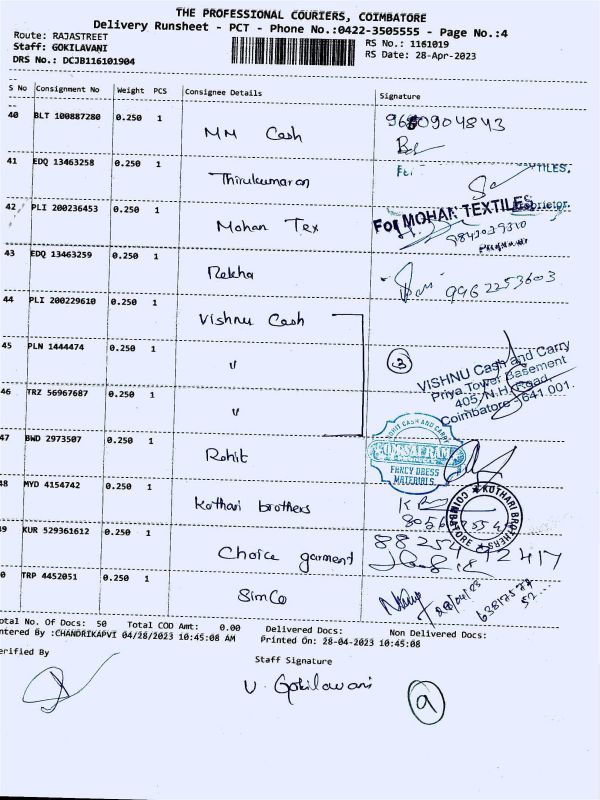 THE PROFESSIONAL COURIERS, COIMBATORE
Delivery Runsheet - PCT - Phone No.:0422-3505555 - Page No.:4
Route: RAJASTREET
Staff: GOKILAVANI
DRS No.: DCJB116101904
RS No.: 1161019
RS Date: 28-Apr-2023
S No Consignment No Weight PCS Consignee Details Signature
40 BLT 100887280 0.250 1 MM Cash
41 EDQ 13463258 0.250 1 Thirukumaran
TILES.
42 PLI 200236453 0.250 1 Mohan Tex
For MOHAN TEXTILES
Proprietor
9842039310
43 EDQ 13463259 0.250 1 Rekha 9962253603
44 PLI 200229610 0.250 1 Vishnu Cash
45 PLN 1444474 0.250 1 " 3
VISHNU Cash and Carry
Priya Tower Basement
405, N.H. Road,
Coimbatore - 641 001.
46 TRZ 56967687 0.250 1 "
47 BWD 2973507 0.250 1 Rohit
ROHIT CASH AND CARRY
FANCY DRESS
MATERIALS
48 MYD 4154742 0.250 1 Kothari brothers
KOTHARI BROTHERS
COIMBATORE
49 KUR 529361612 0.250 1 Choice garment
88254 92417
50 TRP 4452051 0.250 1 SimCo
Total No. Of Docs: 50 Total COD Amt: 0.00 Delivered Docs: Non Delivered Docs:
Entered By :CHANDRIKAPVI 04/28/2023 10:45:08 AM Printed On: 28-04-2023 10:45:08
Verified By
Staff Signature
V. Gokilavani
a